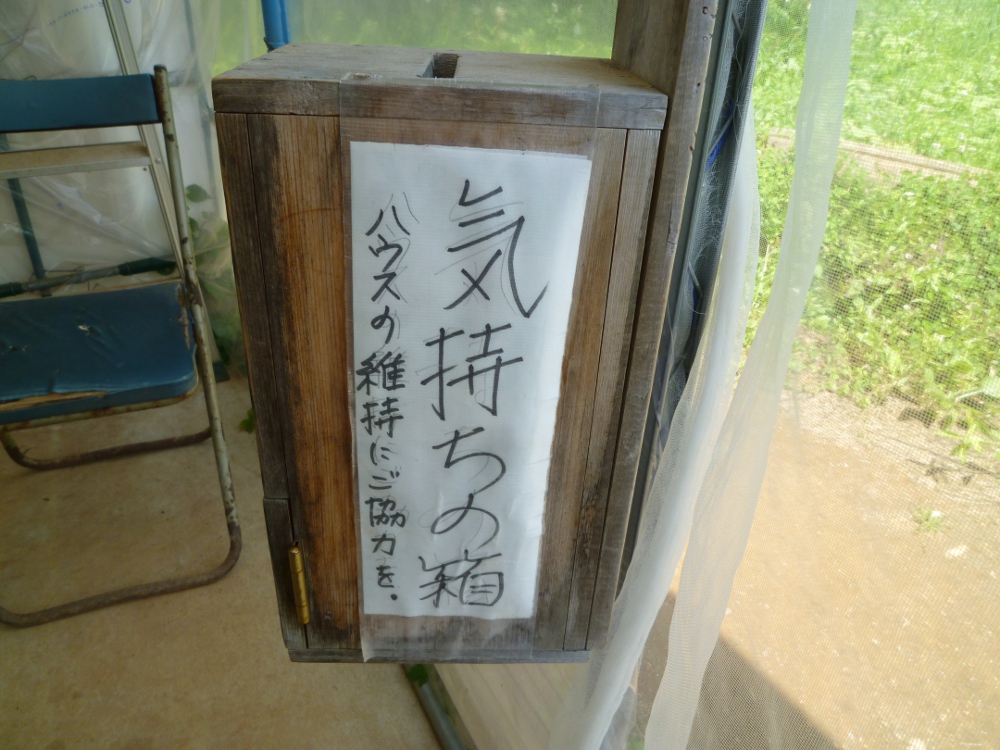 気持ちの箱
ハウスの維持にご協力を.